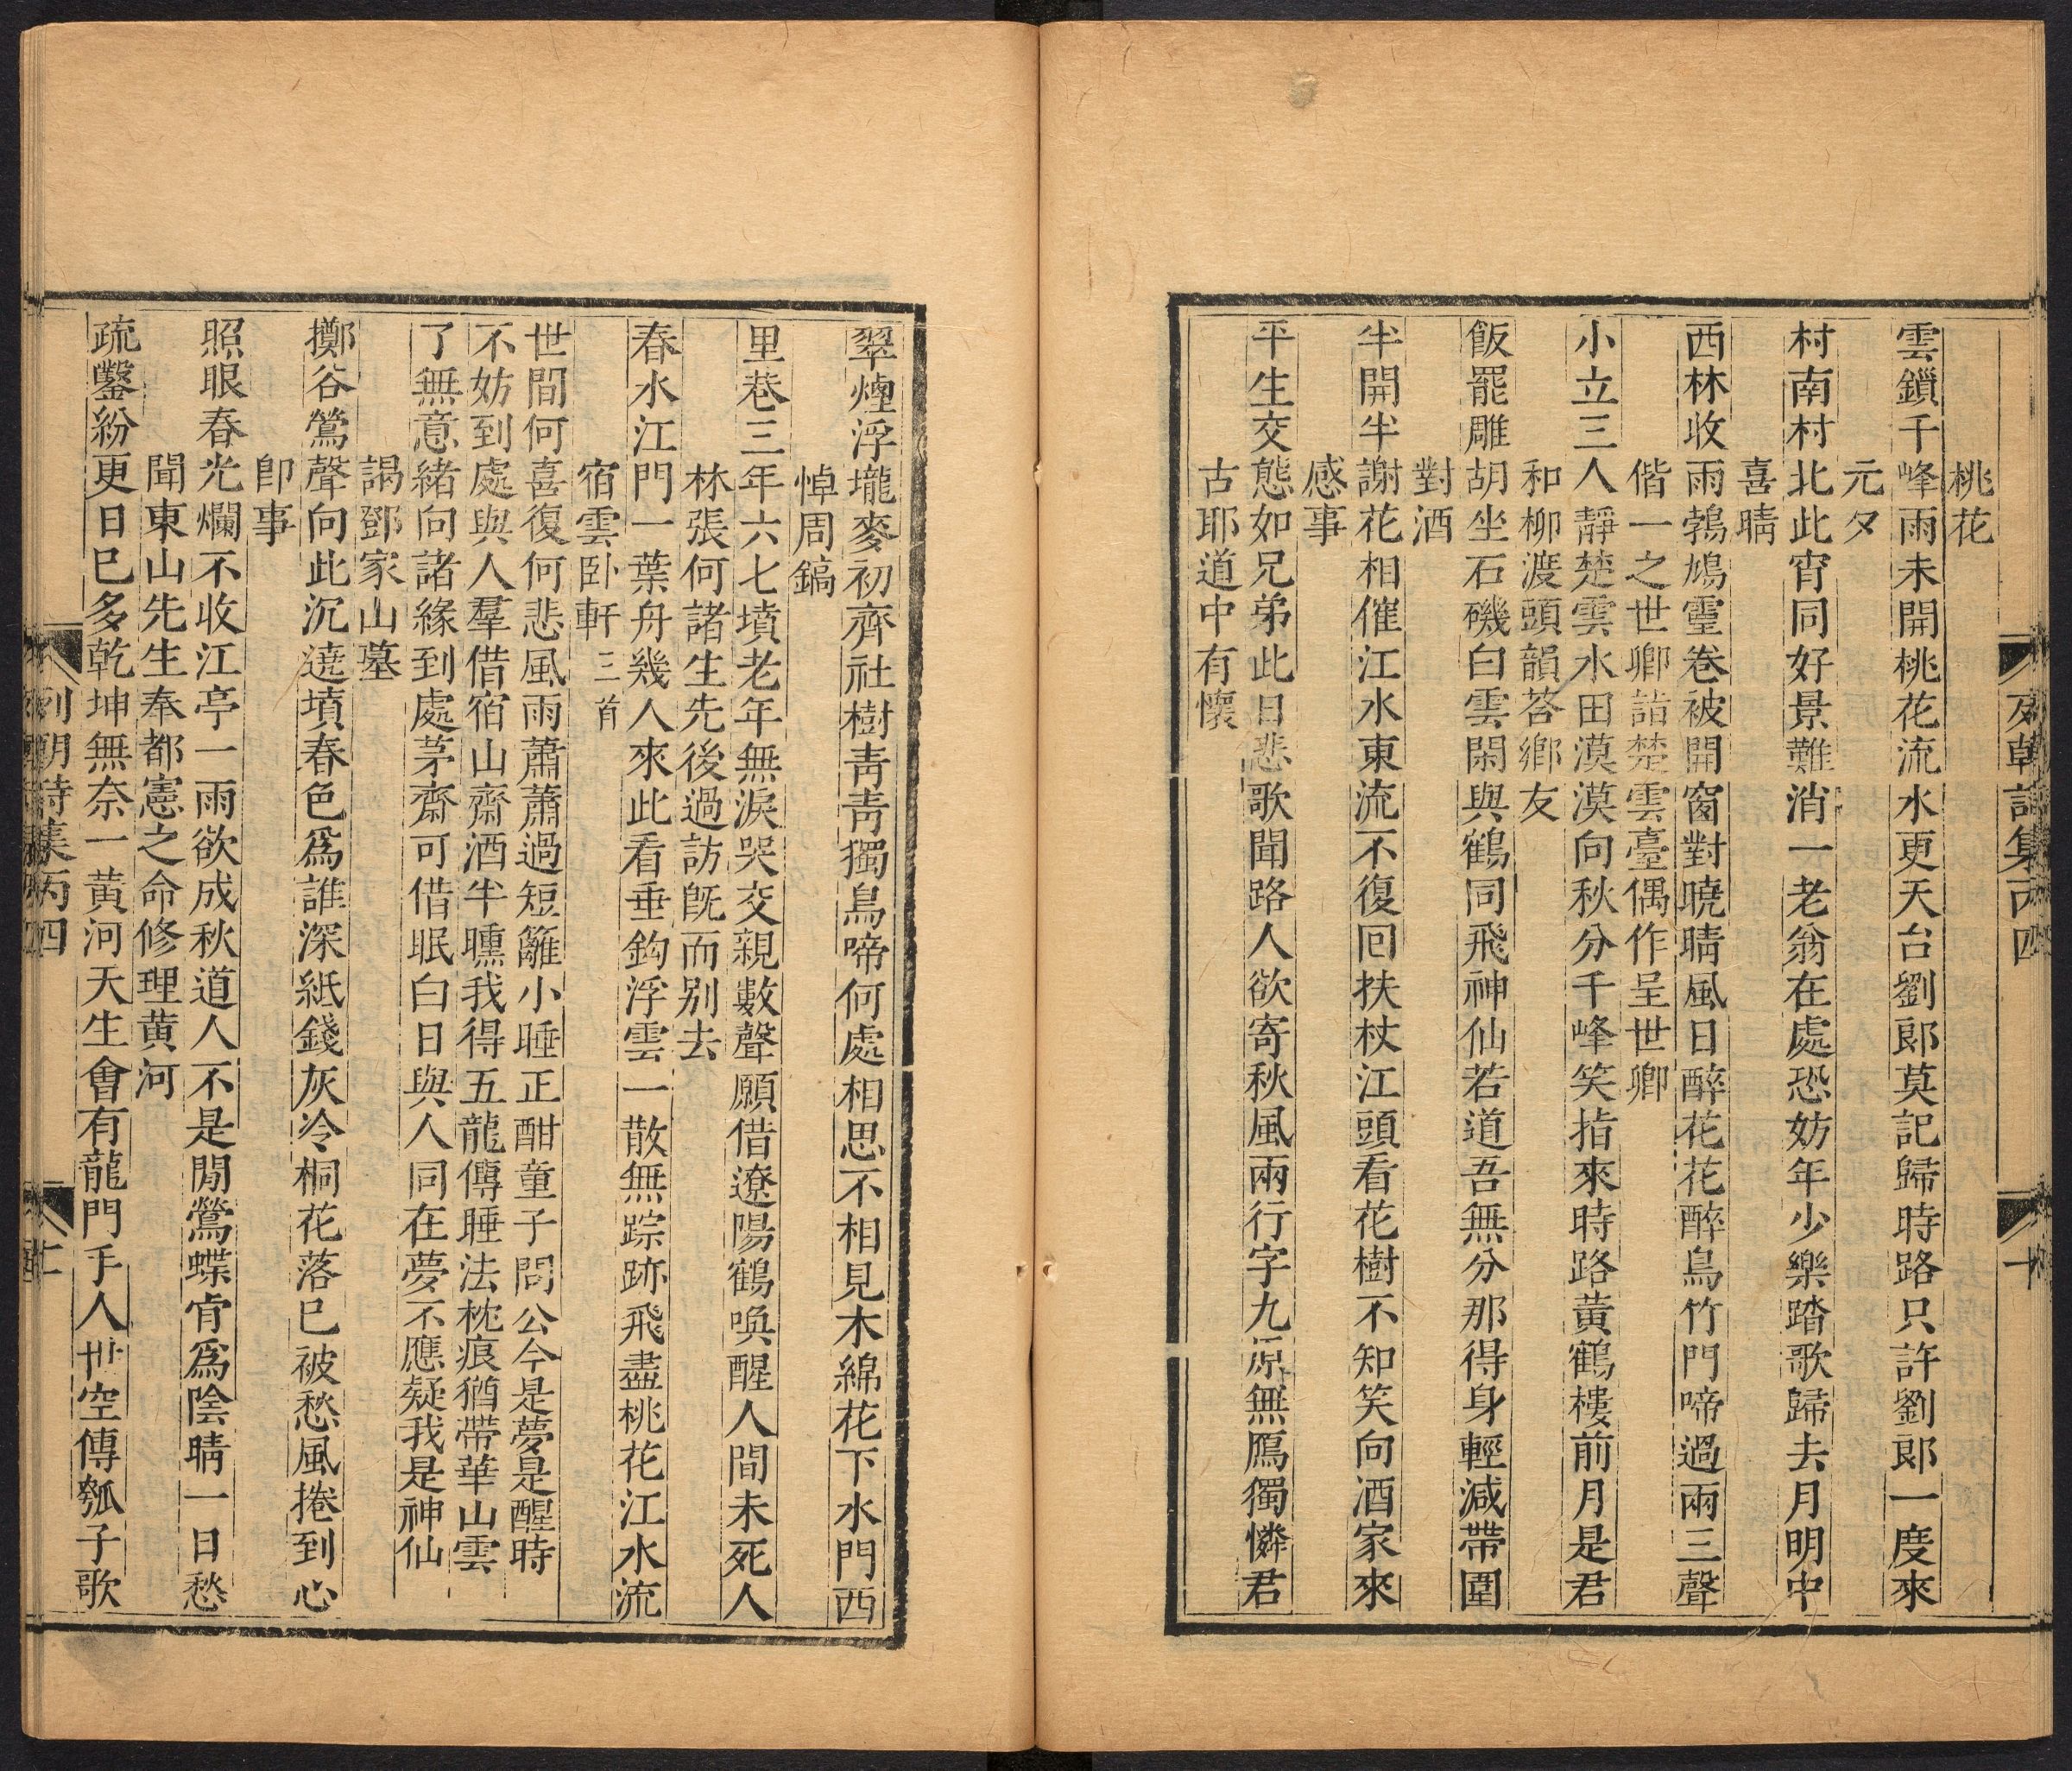 桃花
雲鎖千峰雨未開桃花流水更天台劉郎莫記歸時路只許劉郎一度來
元夕
村南村北此宵同好景難消一老翁在處恐妨年少樂踏歌歸去月明中
喜晴
西林收雨鵓鳩靈卷被開窗對曉晴風日醉花花醉鳥竹門啼過兩三聲
偕一之世卿詣楚雲臺偶作呈世卿
小立三人靜楚雲水田漠漠向秋分千峰笑指來時路黃鶴樓前月是君
和柳渡頭韻荅鄉友
飯罷雕胡坐石磯白雲閑與鶴同飛神仙若道吾無分那得身輕減帶圍
對酒
半開半謝花相催江水東流不復回扶杖江頭看花樹不知笑向酒家來
感事
平生交態如兄弟此日悲歌聞路人欲寄秋風兩行字九原無鴈獨憐君
古耶道中有懷
列朝詩集丙四
十
翠煙浮壠麥初齊社樹青青獨鳥啼何處相思不相見木綿花下水門西
悼周鎬
里巷三年六七墳老年無淚哭交親數聲願借遼陽鶴喚醒人間未死人
林張何諸生先後過訪旣而别去
春水江門一葉舟幾人來此看垂鈎浮雲一散無踪跡飛盡桃花江水流
宿雲卧軒三首
世間何喜復何悲風雨蕭蕭過短籬小睡正酣童子問公今是夢是醒時
不妨到處與人羣借宿山齋酒半醺我得五龍傳睡法枕痕猶帶華山雲
了無意緒向諸緣到處茅齋可借眠白日與人同在夢不應疑我是神仙
謁鄧家山墓
擲谷鶯聲向此沉遶墳春色爲誰深紙錢灰冷桐花落巳被愁風捲到心
卽事
照眼春光爛不收江亭一雨欲成秋道人不是閒鶯蝶肯爲陰晴一日愁
聞東山先生奉都憲之命修理黄河
疏鑿紛更日巳多乾坤無奈一黄河天生會有龍門手人世空傳瓠子歌
列朝詩集丙四
十一